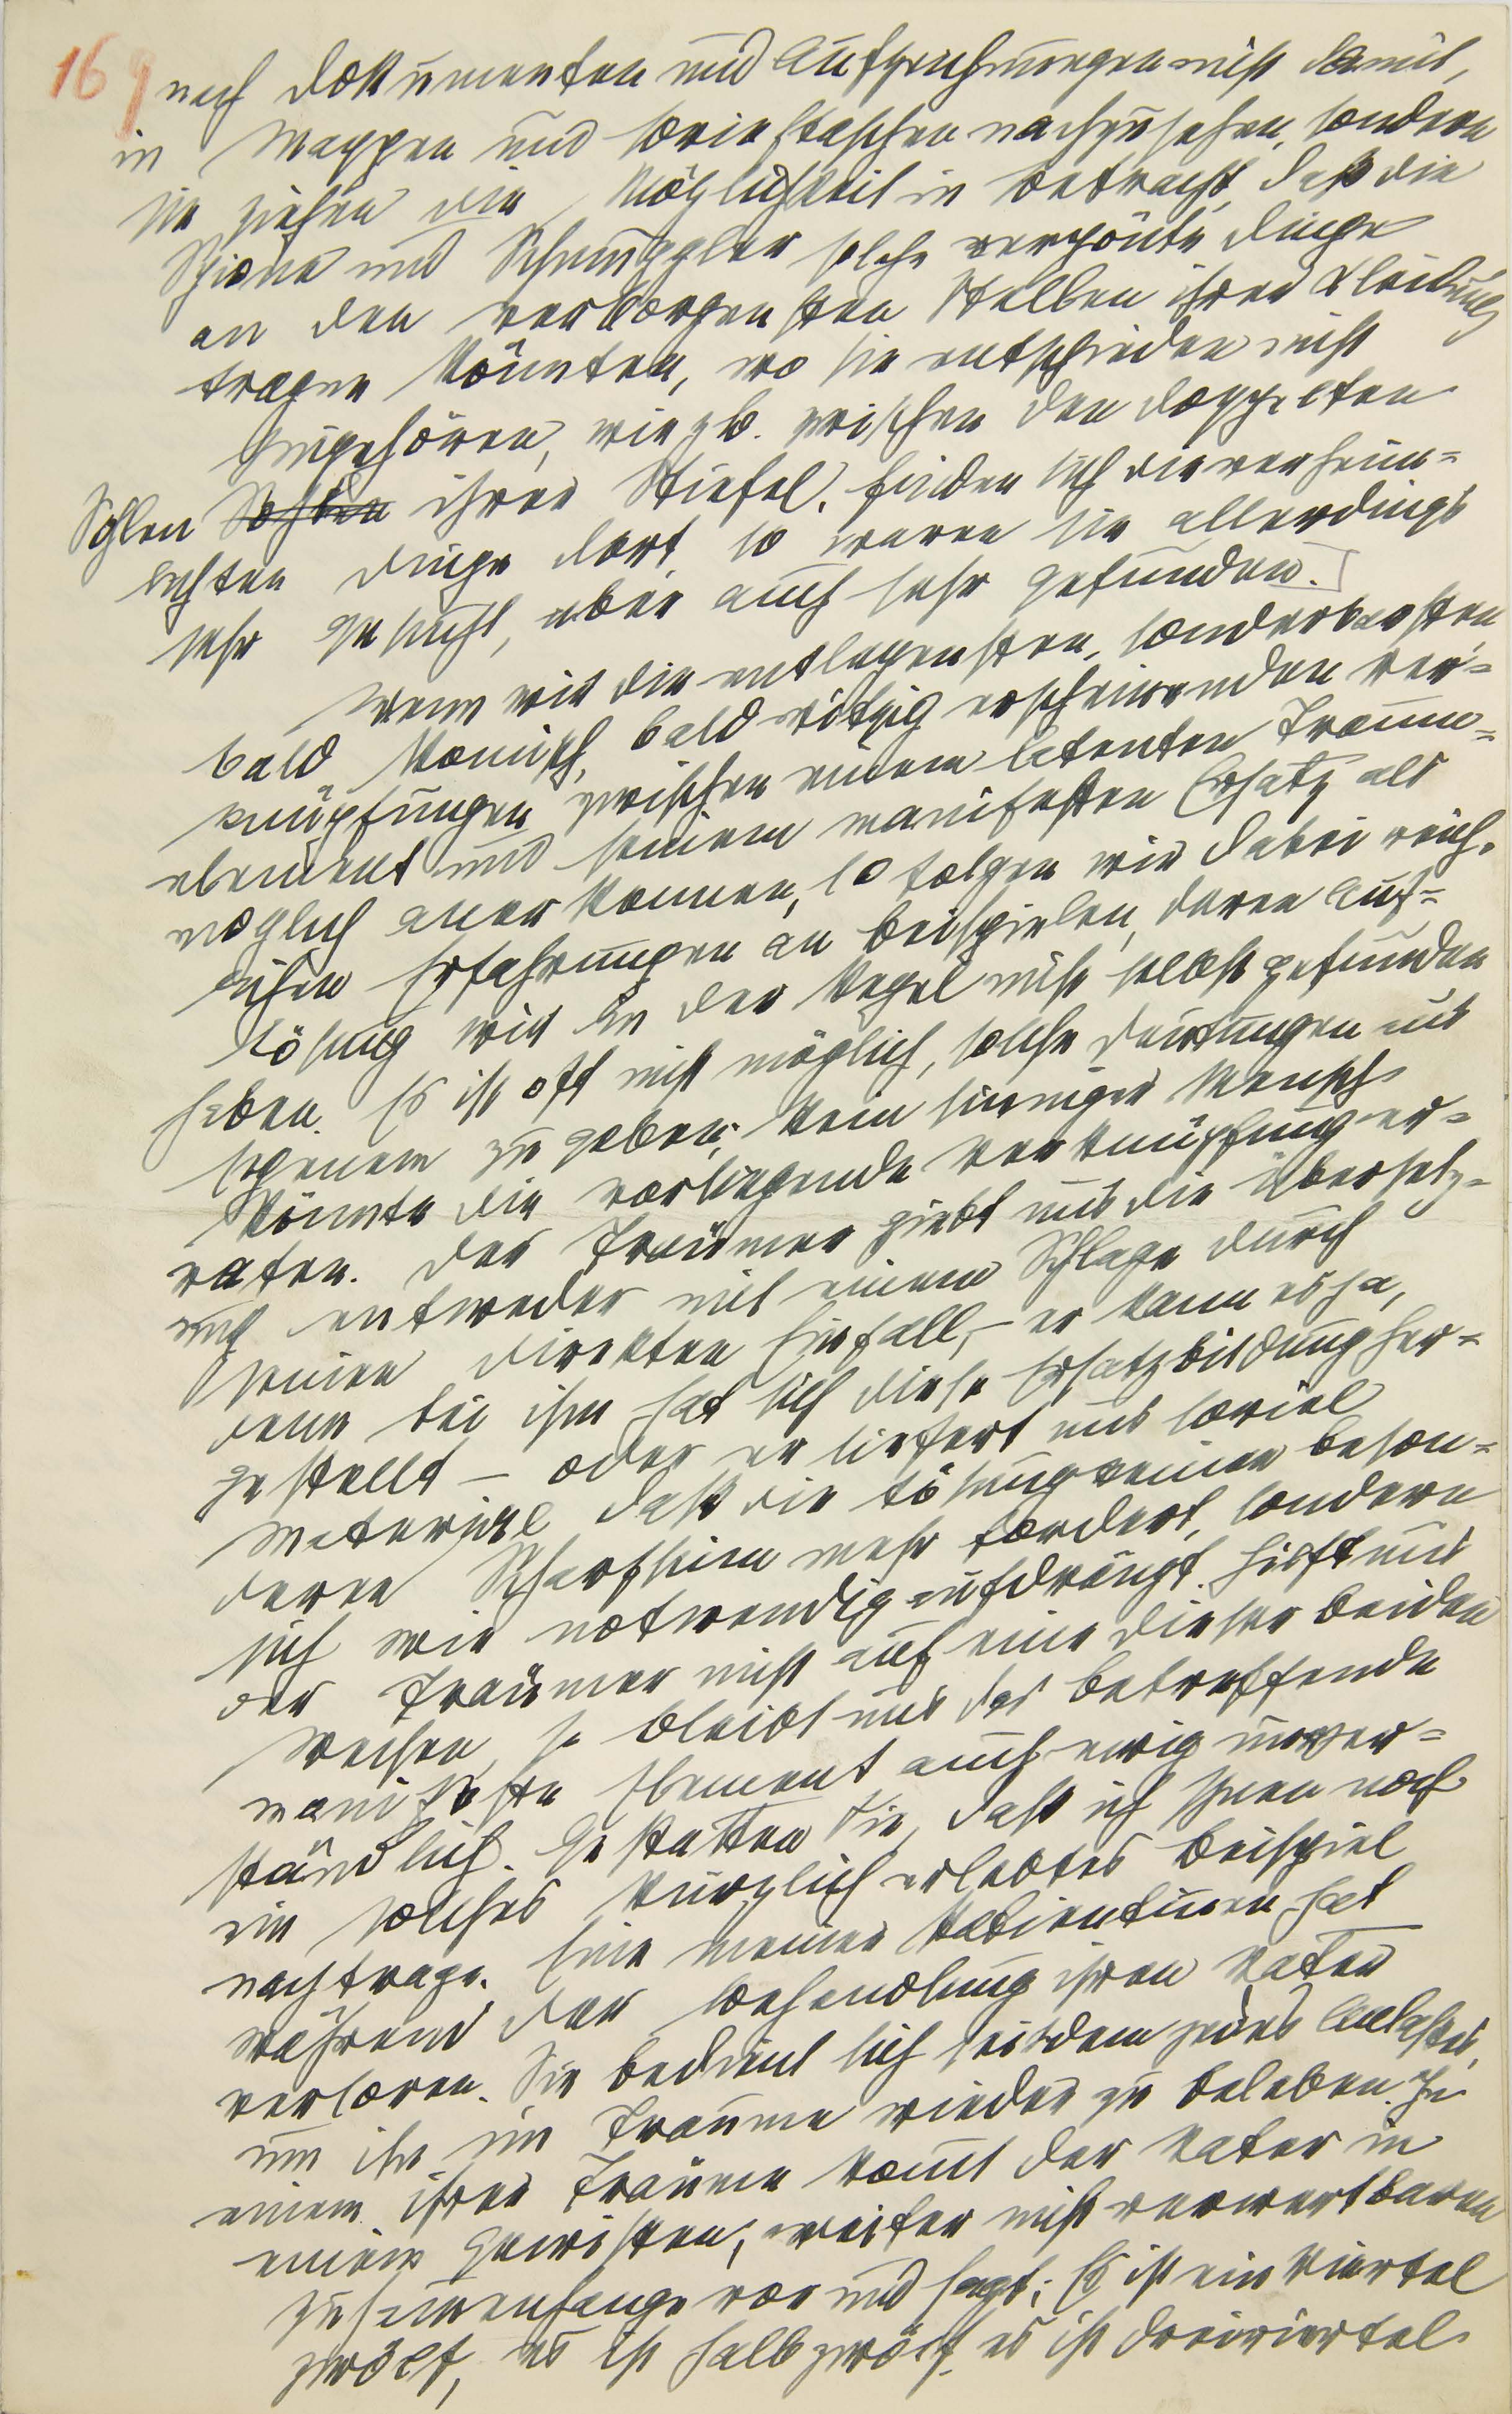 169
nach Dokumenten und Aufzeichnungen nicht damit,
in Mappen und Brieftaschen nachzusehen, sondern
sie ziehen die Möglichkeit in Betracht, daß die
Spione und Schmuggler solche verpönte Dinge
an den verborgensten Stellen ihrer Kleidung
tragen könnten, wo sie entschieden nicht
hingehören, wie zb. zwischen den doppelten
Sohlen Sohlen ihrer Stiefel. Finden sich die verheim-
lichten Dinge dort, so waren sie allerdings
sehr gesucht, aber auch sehr gefunden.
Wenn wir die entlegensten, sonderbarsten
bald komisch, bald witzig erscheinenden Ver-
knüpfungen zwischen einem latenten Traum-
element und seinem manifesten Ersatz als
möglich anerkennen, so folgen wir dabei reich-
lichen Erfahrungen an Beispielen, deren Auf-
lösung wir in der Regel nicht selbst gefunden
haben. Es ist oft nicht möglich, solche Deutungen aus
eigenem zu geben; kein sinniger Mensch
könnte die vorliegende Verknüpfung er-
raten. Der Träumer giebt uns die Übersetz-
ung entweder mit einem Schlage durch
seinen direkten Einfall, – er kann es ja,
denn bei ihm hat sich diese Ersatzbildung her-
gestellt – oder er liefert uns soviel
Material, daß die Lösung keinen beson-
deren Scharfsinn mehr fordert, sondern
sich wie notwendig aufdrängt. Hilft uns
der Träumer nicht auf eine dieser beiden
Weisen, so bleibt uns das betreffende
manifeste Element auch ewig unver-
ständlich. Gestatten Sie, daß ich Ihnen noch
ein solches kürzlich erlebtes Beispiel
nachtrage. Eine meiner Patientinnen hat
während der Behandlung ihren Vater
verloren. Sie bedient sich seitdem jedes Anlasses,
um ihn im Traume wieder zu beleben. In
einem ihrer Träume kommt der Vater in
einem gewissen, weiter nicht verwertbaren
Zusammenhange vor und sagt: Es ist ein Viertel
zwölf, es ist halb zwölf, es ist dreiviertel